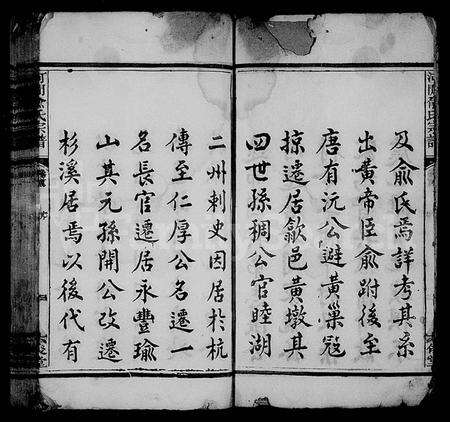 及俞氏焉詳考其系
出黄帝臣俞跗後至
唐有沅公避黄巢寇
掠遷居歙邑黄墩其
四世孫稠公官睦湖
二州刺史因居於杭
傳至仁厚公名遷一
名長官遷居永豐瑜
山其元孫開公改遷
杉溪居焉以後代有